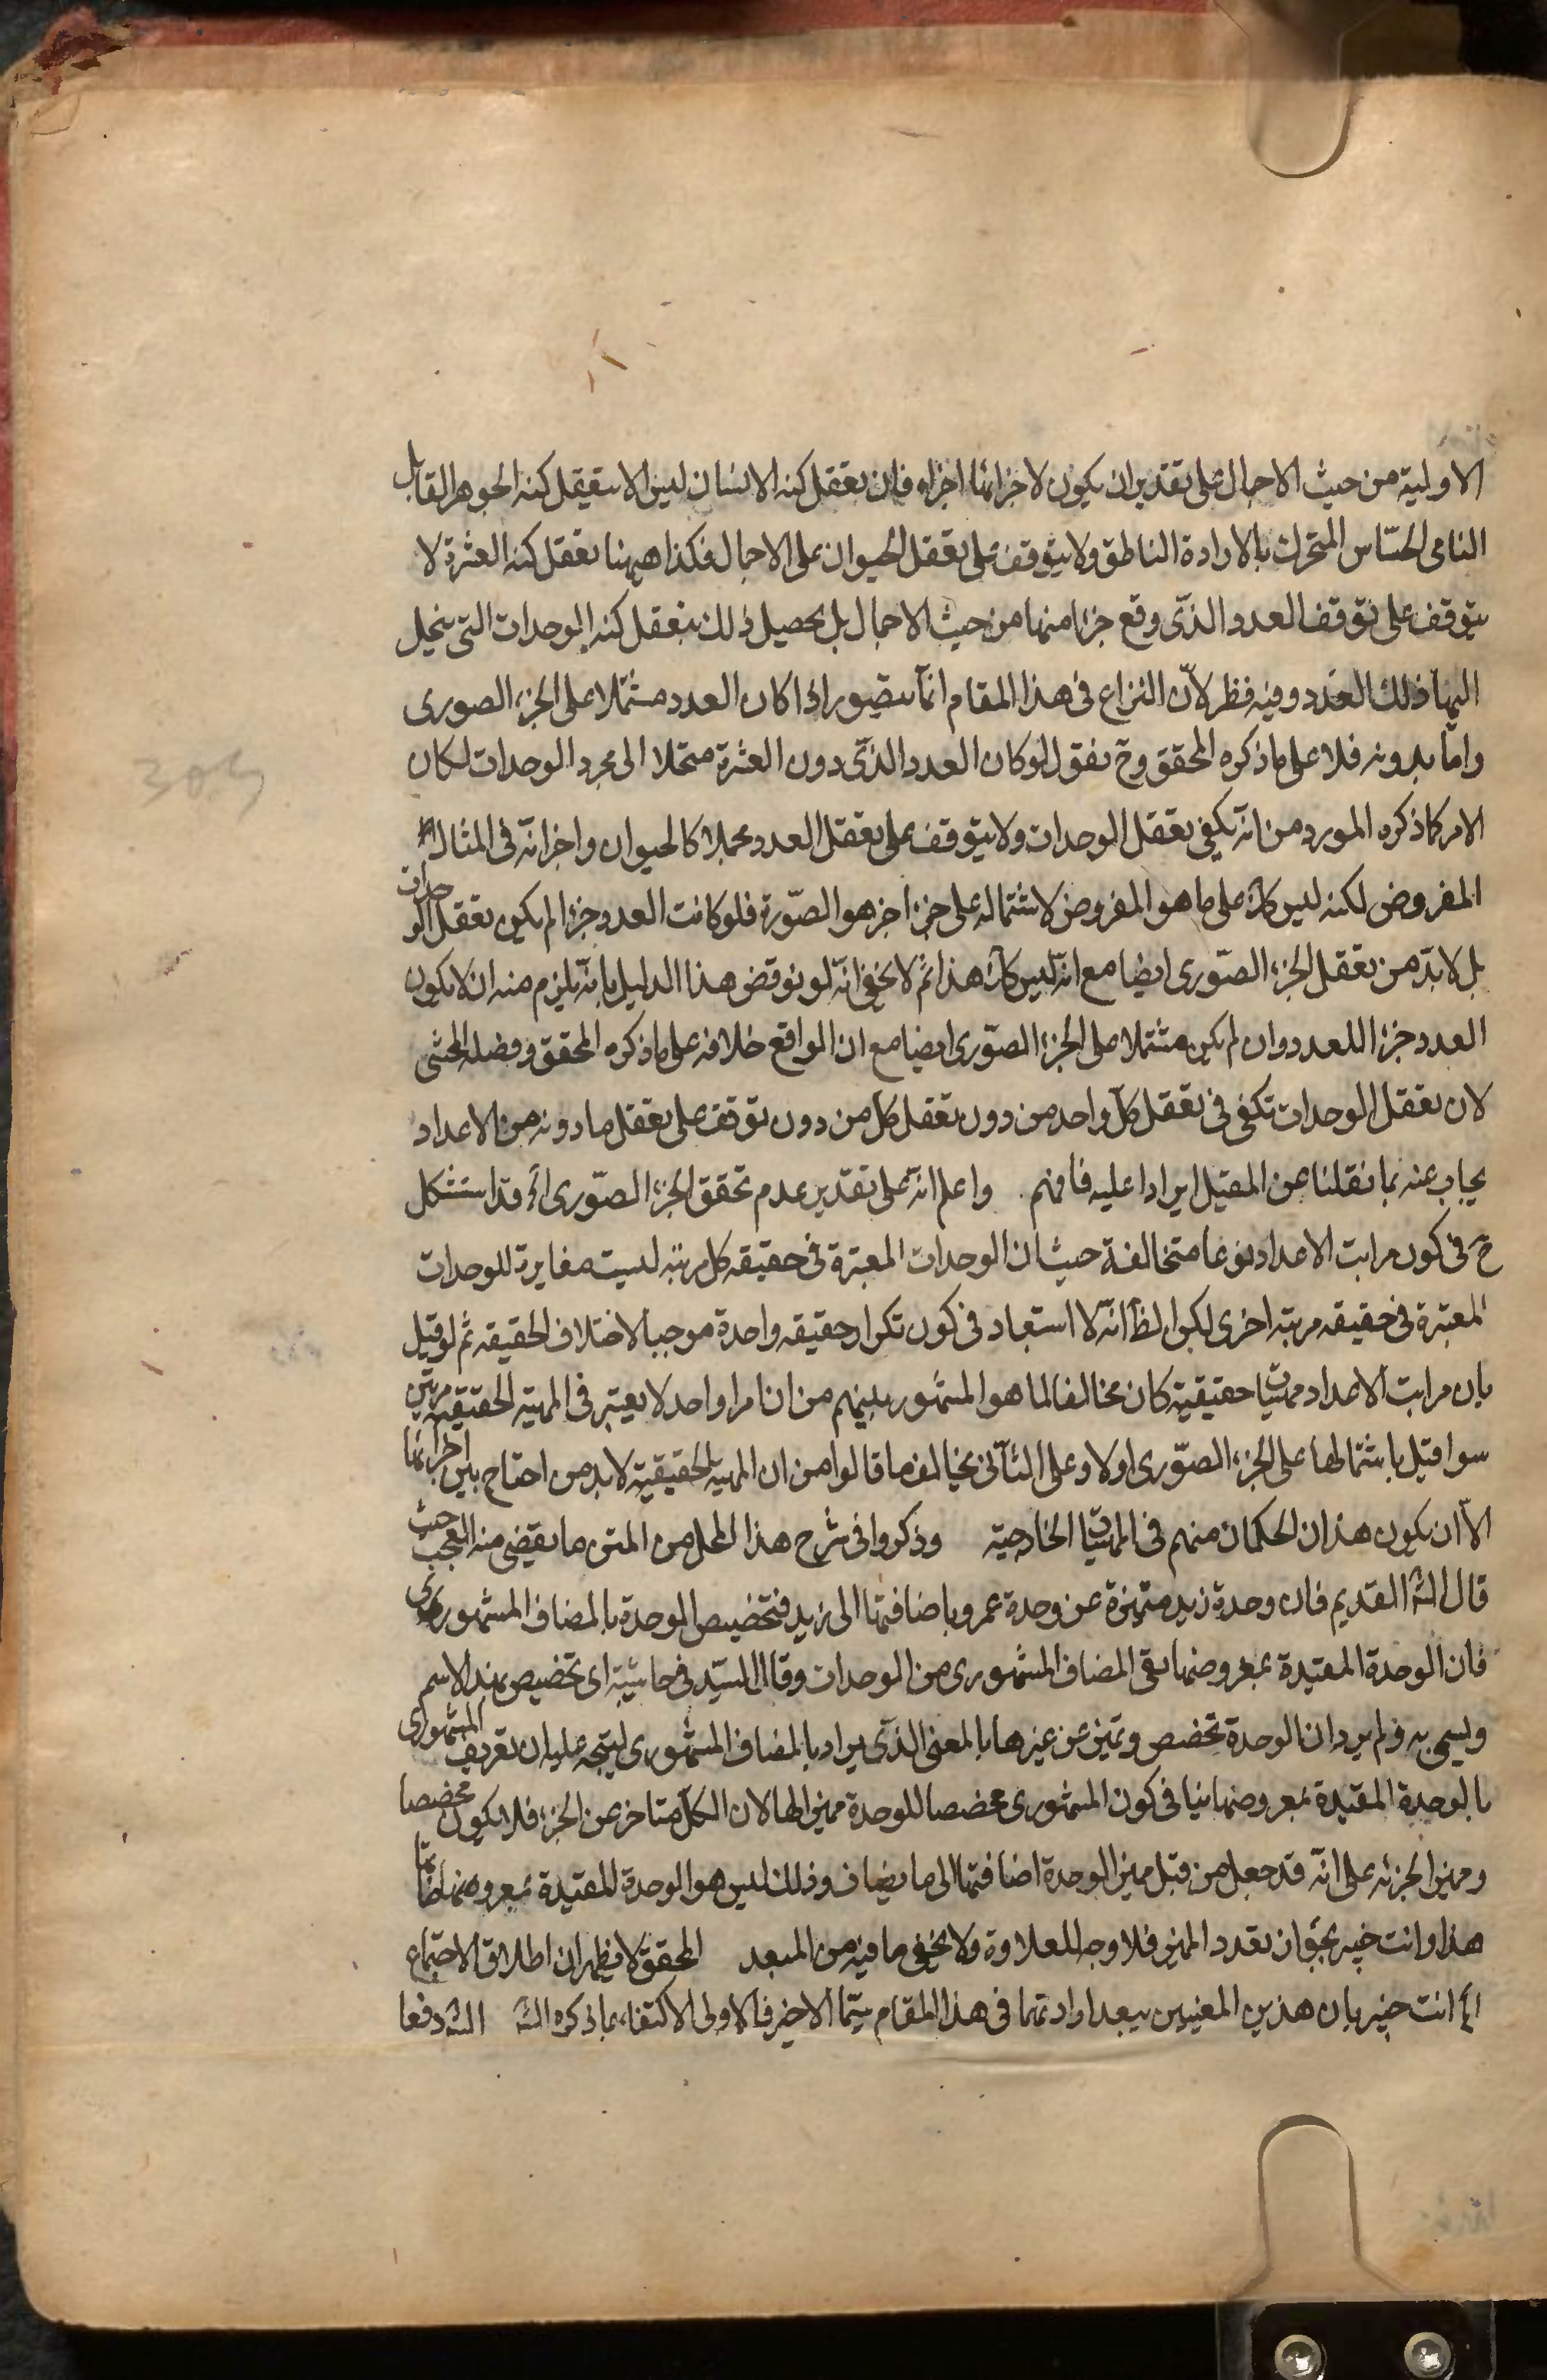 الاولية من حيث الاجمال على تقدير ان يكون لاجزائها اجزاء فان تعقل كنه الانسان ليس الا بتعقل كنه الجوهر القابل
النامى الحسّاس المتحرك بالارادة الناطق ولا يتوقف على تعقل الحيوان على الاجمال فكذا ههنا تعقل كنه العشرة لا
يتوقف على توقف العدد الذى وقع جزءا منها من حيث الاجمال بل يحصل ذلك بتعقل كنه الوحدات التى ينحل
اليها ذلك العدد وفيه نظر لانّ النزاع فى هذا المقام انمّا يتصور اذا كان العدد مشتملا على الجزء الصورى
وامّا بدونه فلا على ما ذكره المحقق وح نقول لو كان العدد الذى دون العشرة منحلا الى مجرد الوحدات لكان
الامر كما ذكره المورد من انه يكفى تعقل الوحدات ولا يتوقف على تعقل العدد مجملا كالحيوان واجزائه فى المثال
المفروض لكنه ليس كك على ما هو المفروض لاشتماله على جزء اخر هو الصّورة فلو كانت العدد جزءا لم يكن تعقل الوحدات
بل لابدّ من تعقل الجزء الصّورى ايضا مع انّه ليس كك هذا ثم لا يخفى انّه لو نوقض هذا الدليل بانّه يلزم منه ان لا يكون
العدد جزءا للعدد وان لم يكن مشتملا على الجزء الصّورى ايضا مع ان الواقع خلافه على ما ذكره المحقق وفصله المحشى
لان تعقل الوحدات تكفى فى تعقل كلّ واحد من دون تعقل كل من دون توقف على تعقل ما دونه من الاعداد
يجاب عنه بما نقلنا عن القيل ايرادا عليه فافهم واعلم انّه على تقدير عدم تحقق الجزء الصّورى قد استشكل
ح فى كون مراتب الاعداد نوعا متخالفة حيث ان الوحدات المعتبرة فى حقيقه كل مرتبه ليست مغايرة للوحدات
المعتبرة فى حقيقه مرتبه اخرى لكن الظ انّه لا استبعاد فى كون تكرار حقيقه واحدة موجبا لاختلاف الحقيقه ثم لو قيل
بان مراتب الاعداد مهيّات حقيقية كان مخالفا لما هو المشهور بينهم من ان امرا واحد لا يعتبر فى المهية الحقيقيه مرتين
سوا قيل باشتمالها على الجزء الصّورى او لا وعلى الثانى يخالف ما قالوا من ان المهية الحقيقية لابد من احتاج بين اجزائها
الاّ ان يكون هذان الحكمان منهم فى المهيّات الخارجيّه وذكروا فى شرح هذا المحل من المتن ما يقضى منه العجب حيث
قال الشّ القديم فان وحدة زيد متميّزة عن وحدة عمرو باضافتها الى زيد فتخصيص الوحدة بالمضاف المشهورى
فان الوحدة المقيّدة بمعروضها تبقى المضاف المشهورى من الوحدات وقال السيّد فى حاشيته اى تخصيص بهذا الاسم
ويسمى به ولم يرد ان الوحدة تخصص وتميز عن غيرها بالمعنى الذى يراد بالمضاف المشهورى ليتجه عليه ان تعريف المشهورى
بالوحدة المقيّدة بمعروضها ينافى كون المشهورى مخصصا للوحدة مميزا لها لان الكلّ متاخر عن الجزء فلا يكون مخصصا
ومميز الجزئه على انّه قد جعل من قبل مميز الوحدة اضافتها الى ما يضاف وذلك ليس هو الوحدة المقيّدة بمعروضها
هذا وانت خبير بجواز تعدد المميز فلا وجه للعلاوة ولا يخفى ما فيه من البعد المحقق لا فيظهر ان اطلاق الاجتماع
انت خبير بان هذين المعنيين يبعد ارادتهما فى هذا المقام سيّما الاخير فالاولى الاكتفاء بما ذكره الشّ الشّ دفعا